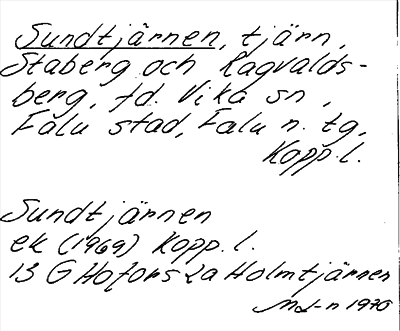 Sundtjärnen, tjärn,
Staberg och Ragvalds-
berg, fd. Vika sn,
Falu stad, Falu n. tg,
Kopp.l.
Sundtjärnen
ek (1969) Kopp.l.
13 G Hofors 2a Holmtjärnen
1970